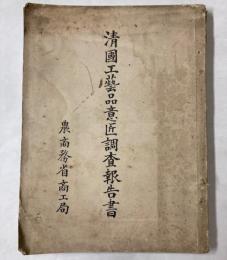 清國工藝品意匠調査報告書
農商務省商工局